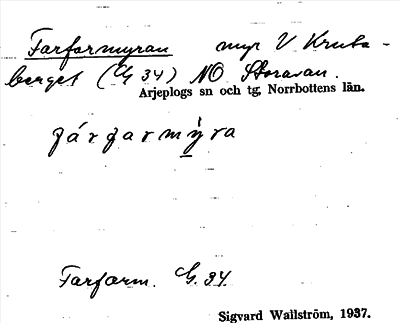 Farfarmyran myr V Kruta-
berget (G 34) NO Storavan.
Arjeplogs sn och tg, Norrbottens län.
fárfarmỳra
Farfarm. G. 34.
Sigvard Wallström, 1937.